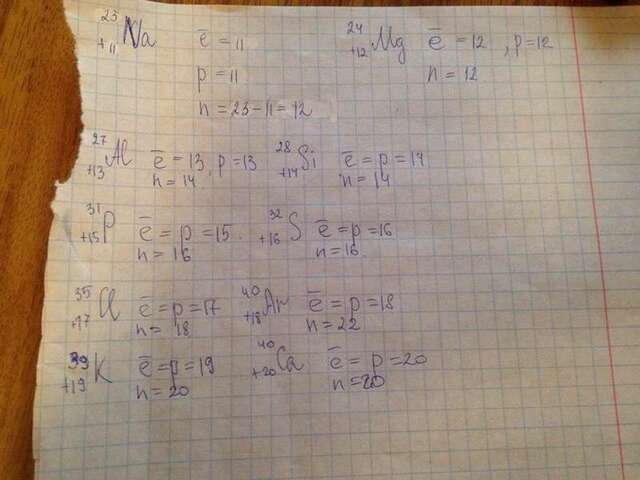 23 +11 Na ē = 11 24 +12 Mg ē = 12 , p = 12
p = 11 n = 12
n = 23 - 11 = 12
27 +13 Al ē = 13, p = 13 28 +14 Si ē = p = 14
n = 14 n = 14
31 +15 P ē = p = 15. 32 +16 S ē = p = 16
n = 16 n = 16.
35 +17 Cl ē = p = 17 40 +18 Ar ē = p = 18
n = 18 n = 22
39 +19 K ē = p = 19 40 +20 Ca ē = p = 20
n = 20 n = 20